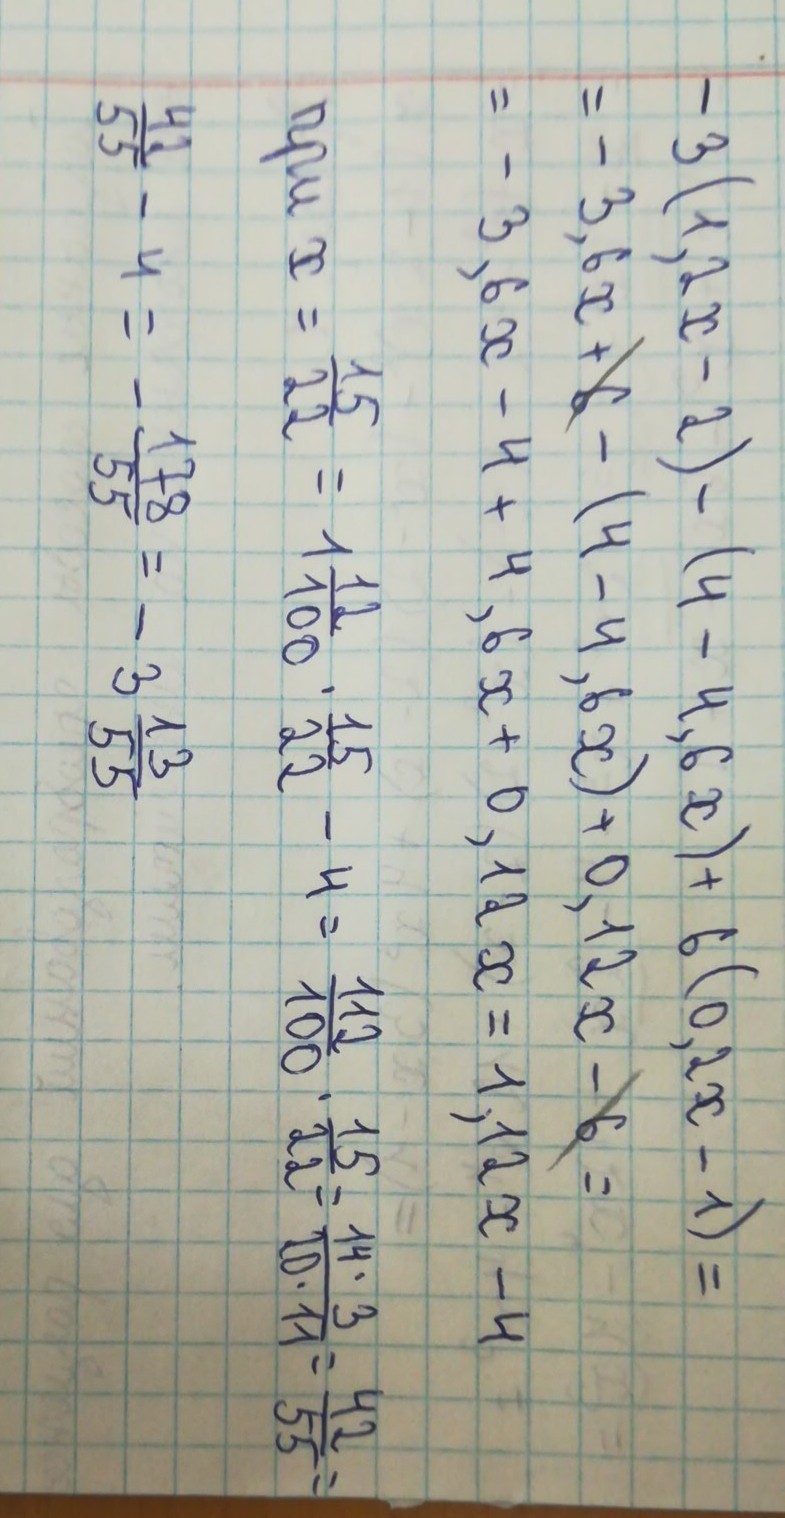 - 3(1,2x - 2) - (4 - 4,6x) + 6(0,2x - 1) =
= - 3,6x + 6 - (4 - 4,6x) + 0,12x - 6 =
= - 3,6x - 4 + 4,6x + 0,12x = 1,12x - 4
при x = 15/22 = 1 12/100 · 15/22 - 4 = 112/100 · 15/22 = 14·3/10·11 = 42/55 =
42/55 - 4 = - 178/55 = - 3 13/55